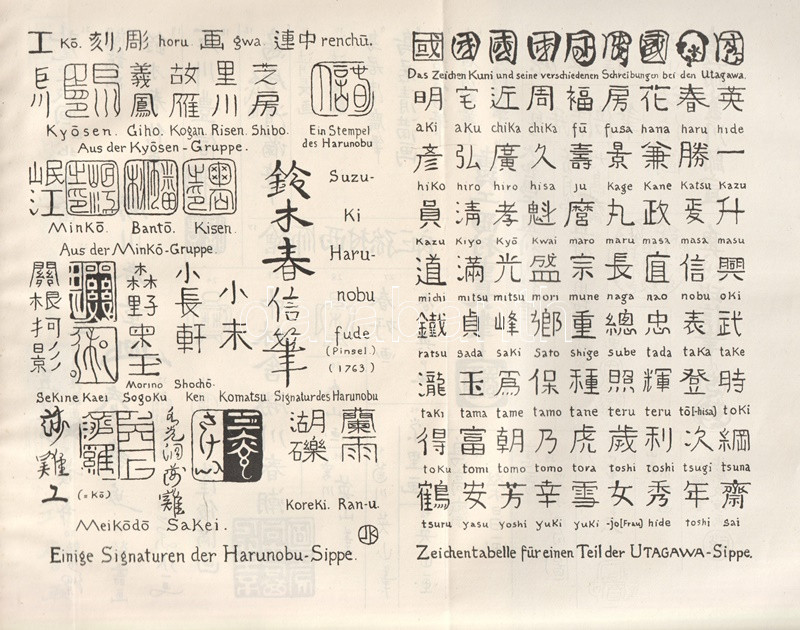 工 Kō. 刻, 彫 horu 画 gwa 連中 renchū.
巨川 義鳳 故雁 里川 芝房
Kyōsen. Giho. Kogan. Risen. Shibo. Ein Stempel
Aus der Kyōsen-Gruppe. des Harunobu
岷江
Minkō. Bantō. Kisen.
Aus der Minkō-Gruppe.
鈴木春信筆
Suzu-
Ki
Haru-
nobu
fude
(Pinsel.)
(1763)
關根 森野宋玉 小長軒 小末
Morino Shochō-
Sekine Kaei SogoKu Ken Komatsu Signatur des Harunobu
弥 雞 工
(=Kō)
湖礫 蘭雨
Koreki. Ran-u.
Meikōdō Sakei.
JK
Einige Signaturen der Harunobu-Sippe.
國
Das Zeichen Kuni und seine verschiedenen Schreibungen bei den Utagawa.
明 宅 近 周 福 房 花 春 英
aKi aKu chiKa chiKa fū fusa hana haru hide
彦 弘 廣 久 壽 景 兼 勝 一
hiKo hiro hiro hisa ju Kage Kane Katsu Kazu
員 清 孝 魁 麿 丸 政 升
Kazu Kiyo Kyō Kwai maro maru masa masa masu
道 滿 光 盛 宗 長 宜 信 興
michi mitsu mitsu mori mune naga nao nobu oKi
鐵 貞 峰 鄉 重 總 忠 表 武
ratsu sada saKi Sato shige sube tada taKa taKe
瀧 玉 為 保 種 照 輝 登 時
taki tama tame tamo tane teru teru tō[-hisa] toKi
得 富 朝 乃 虎 歲 利 次 綱
toKu tomi tomo tomo tora toshi toshi tsugi tsuna
鶴 安 芳 幸 雪 女 秀 年 齋
tsuru yasu yoshi yuKi yuKi -jo[Frau] hide toshi sai
Zeichentabelle für einen Teil der UTAGAWA-Sippe.